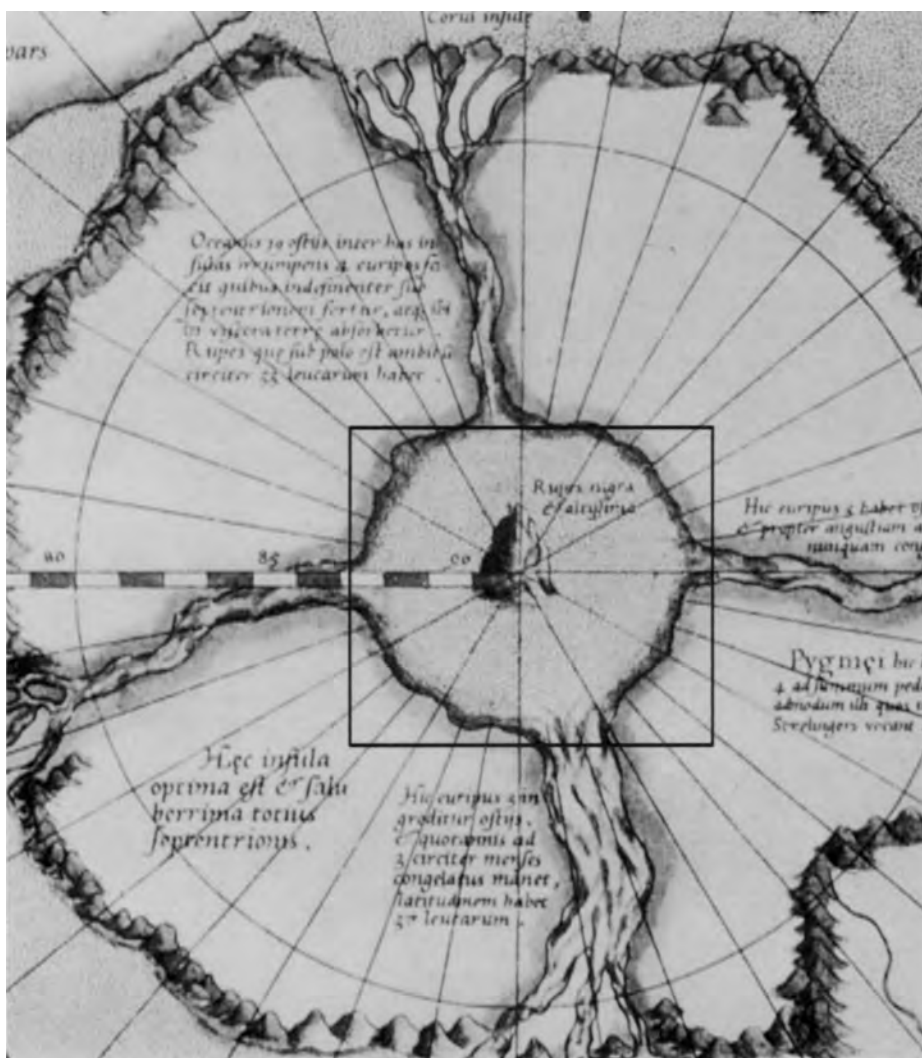 Corui insule
pars
Oceanus 19 ostijs inter has in
sulas irrumpens 4 euripos fa
cit quibus indesinenter sub
septentrionem fertur, atq; ibi
in viscera terre absorbetur.
Rupes que sub polo est ambitu
circiter 33 leucarum habet.
Rupes nigra
& altissima
80
85
90
Hic euripus 5 habet
& propter angustiam
nunquam
Pygmei hic
4 ad summum
admodum illi quos
Screlingers vocant
Hęc insula
optima est & salu
berrima totius
septentrionis.
Hic euripus 3 in
greditur ostijs,
& quotannis ad
3 circiter menses
congelatus manet,
latitudinem habet
37 leucarum.